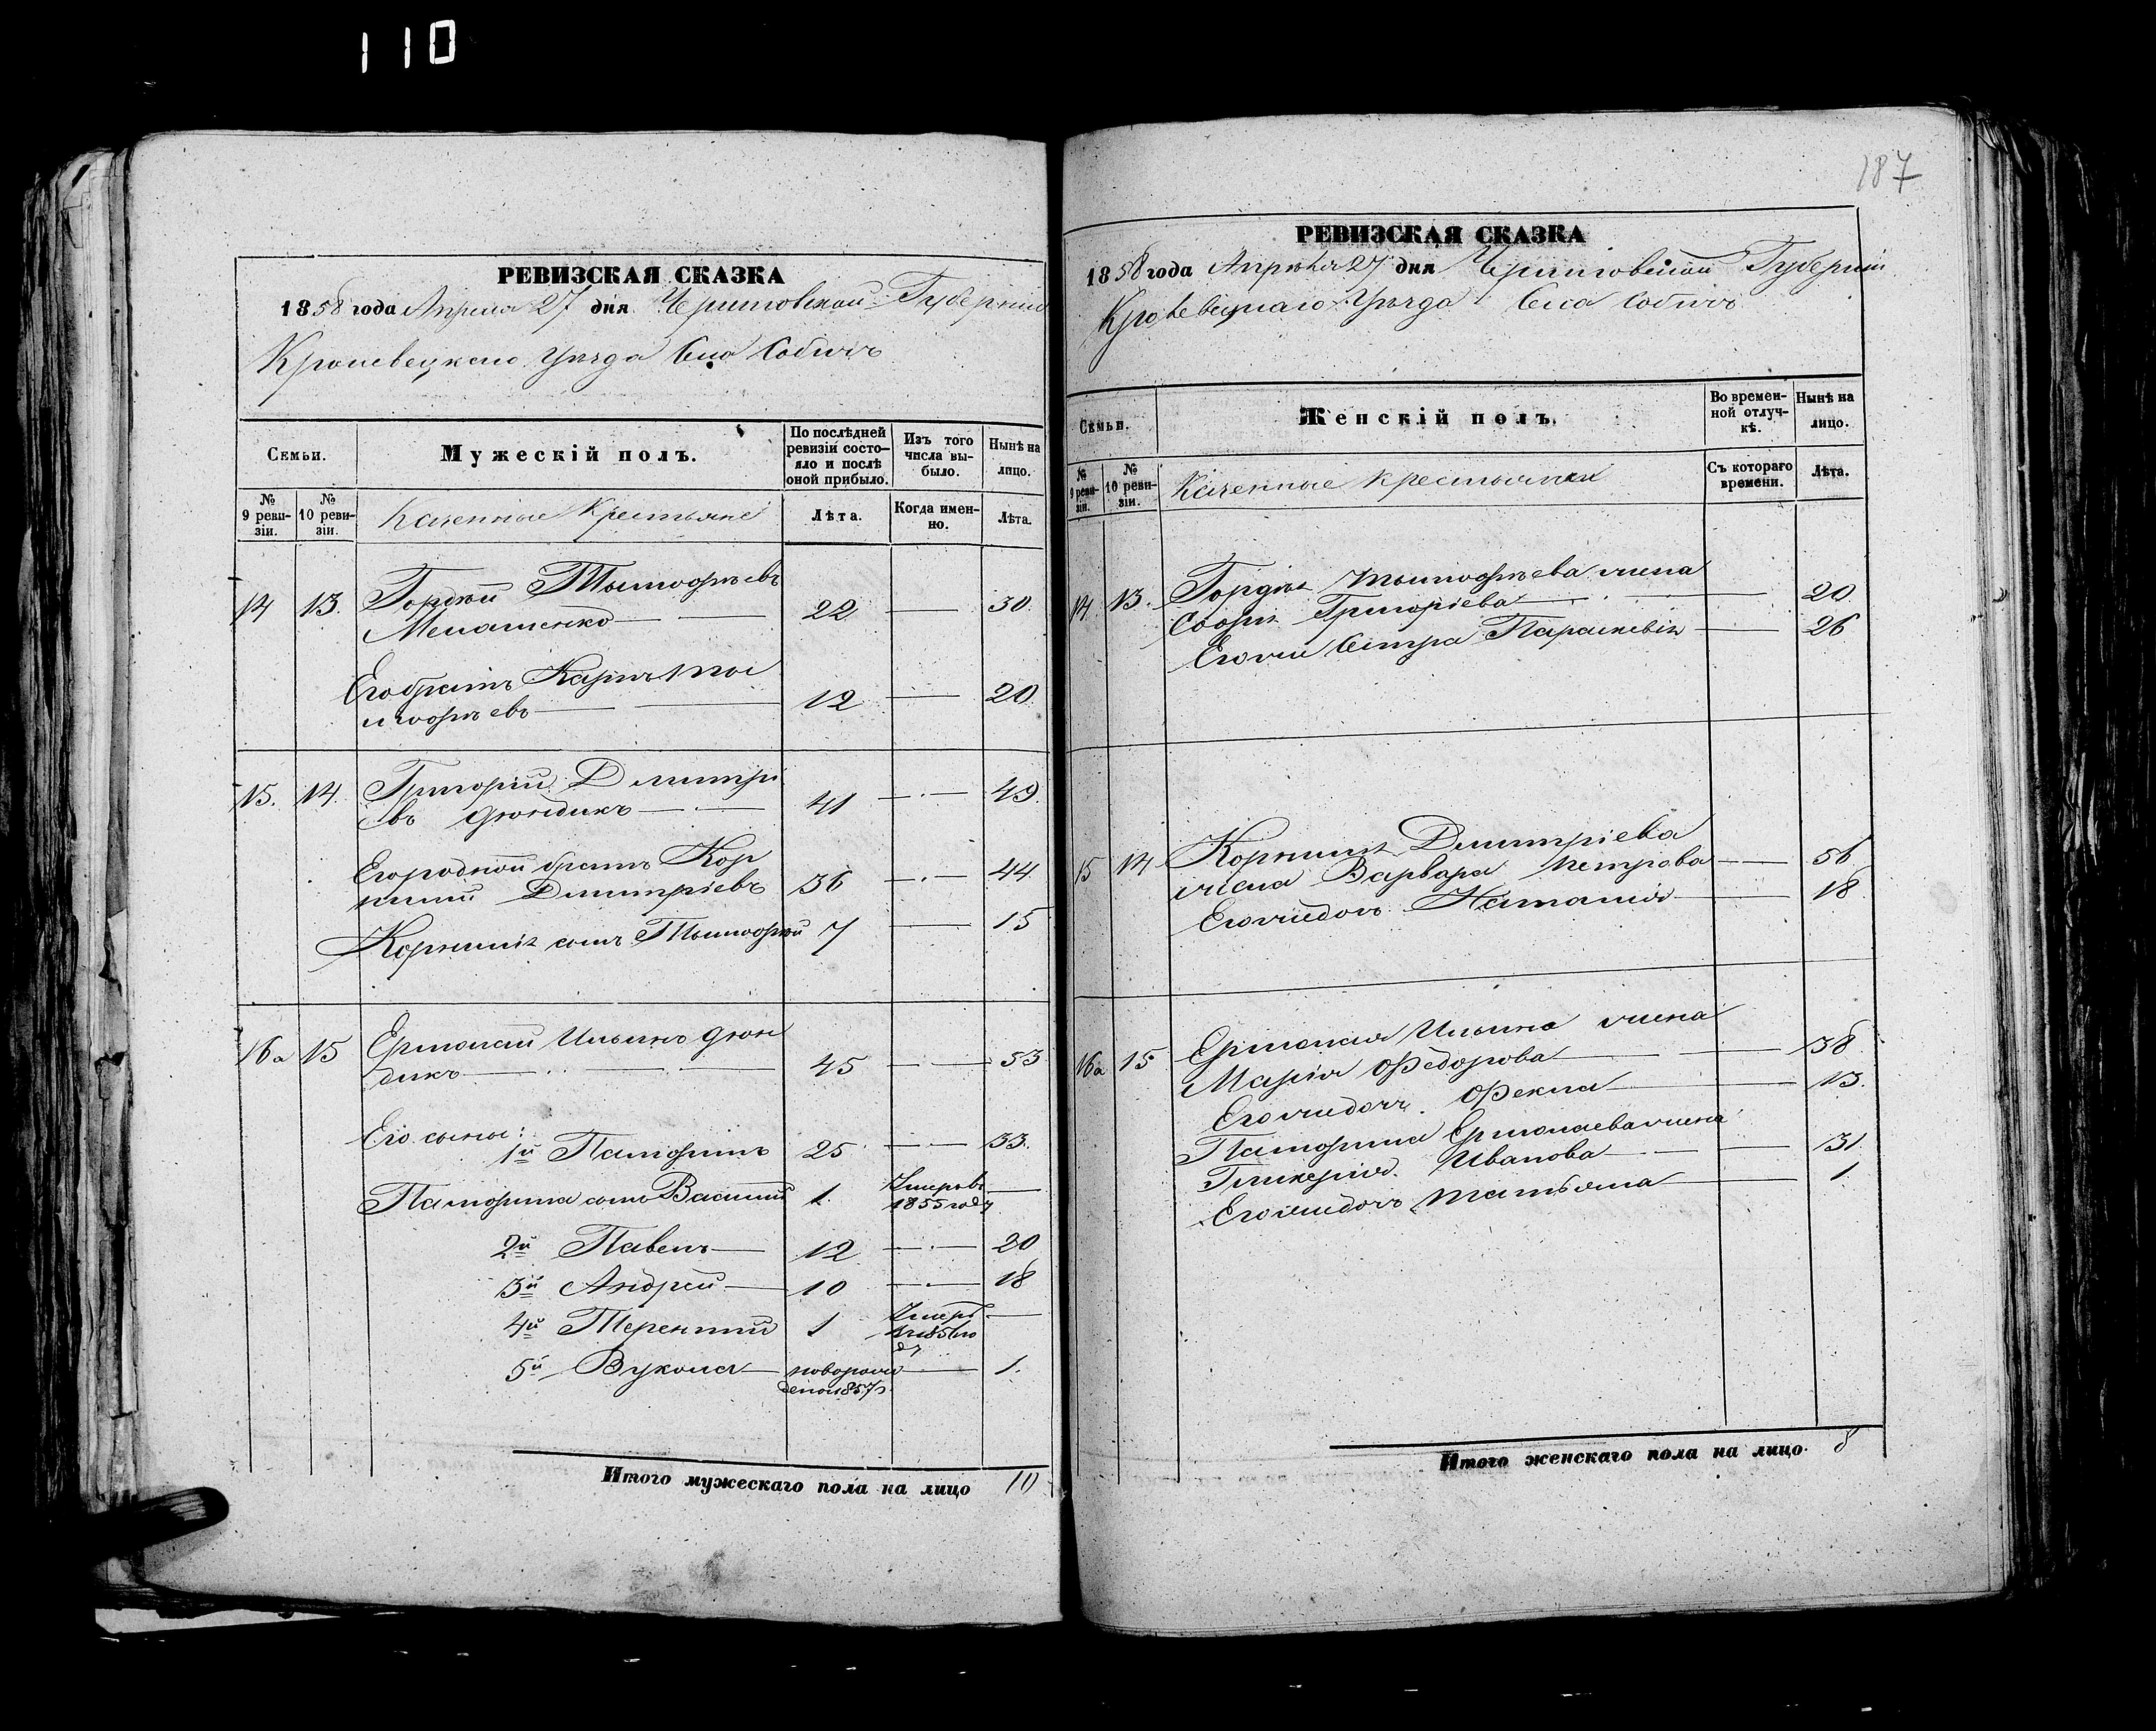 110
РЕВИЗСКАЯ СКАЗКА
1858 года Апреля 27 дня Черниговской Губерніи
Кролевецкаго Уѣзда Села Собичъ
Семьи.
Мужескій полъ.
По послѣдней ревизіи состо-
яло и послѣ
оной прибыло.
Изъ того
числа вы-
было.
Нынѣ на
лицо.
№ 9 реви-
зіи.
№ 10 реви-
зіи.
Казенные Крестьяне
Лѣта.
Когда имен-
но.
Лѣта.
14 13. Гордѣй Тымофѣевъ
Мелашенко 22 30.
Его братъ Карпъ Ты
мофѣевъ 12 20
15. 14. Григорій Дмитрі
евъ Дюндикъ 41 49.
Его родной братъ Кор
нилій Дмитріевъ 36 44
Корнилія сынъ Тымофѣй 7 15
16а 15 Ермолай Ильинъ Дюн
дикъ 45 53
Его сыны:
1й Памфилъ 25 33.
Памфила сынъ Василій 1. Умеръ въ
1855 году
2й Павелъ 12 20
3й Андрей 10 18
4й Терентій 1 Умеръ
въ 1851 го
ду
5й Вукола новорож
денъ 1857 1.
Итого мужескаго пола на лицо 10
187
РЕВИЗСКАЯ СКАЗКА
1858 года Апрѣля 27 дня Черниговской Губерніи
Кролевецкаго Уѣзда Села Собичъ
Семьи.
Женскій полъ.
Во времен-
ной отлуч-
кѣ.
Нынѣ на
лицо.
№ 9 реви-
зіи.
№ 10 реви-
зіи.
Казенные Крестьянки
Съ котораго
времени.
Лѣта.
14. 13. Гордѣя Тымофѣева жена
Софія Григоріева 20
Его же Сестра Параскевія 26
15 14 Корнилія Дмитріева
жена Варвара Петрова 36
Его же дочь Наталія 18
16а 15 Ермолая Ильина жена
Марія Федорова 38
Его же дочь Фекла 13.
Памфила Ермолаева жена
Гликерія Иванова 31
Его же дочь Татьяна 1
Итого женскаго пола на лицо. 8